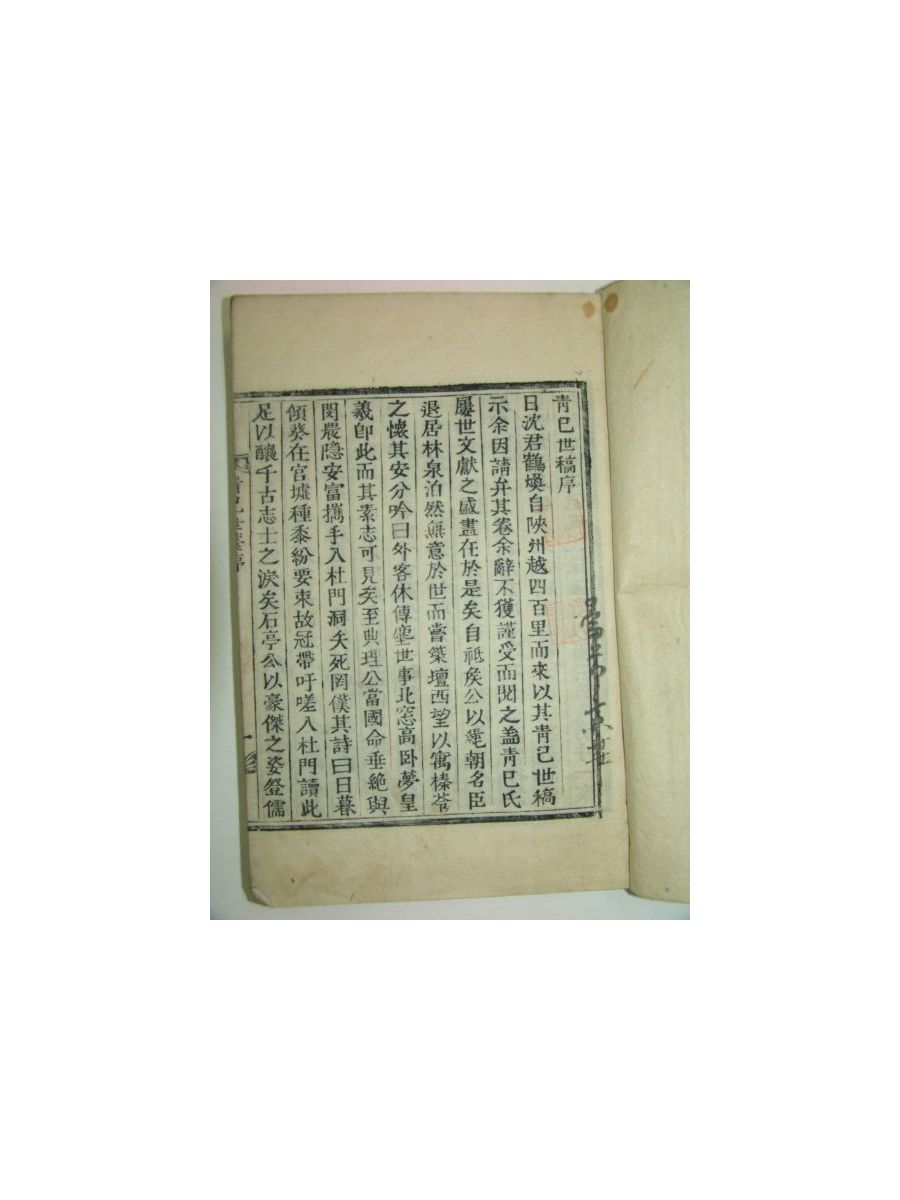 靑已世稿序
日沈君鶴煥自陜州越四百里而來以其靑已世稿
示余因請弁其卷余辭不獲謹受而閱之盖靑已氏
屢世文獻之盛盡在於是矣自祗矦公以麗朝名臣
退居林泉泊然無意於世而嘗築壇西望以寓榛苓
之懷其安分吟曰外客休傳塵世事北窓高卧夢皇
羲卽此而其素志可見矣至典理公當國命垂絶與
閔農隱安富攜手入杜門洞矢死罔僕其詩曰日暮
傾葵在宮墟種黍紛要束故冠帶吁嗟入杜門讀此
足以釀千古志士之淚矣石亭公以豪傑之姿登儒